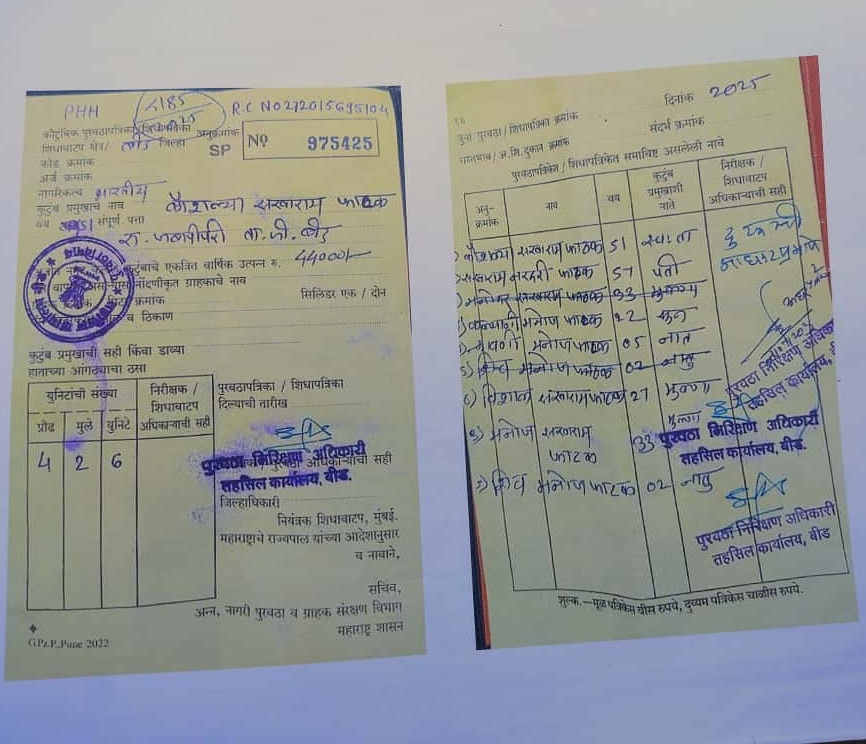 PHH 4185 R.C NO272015695104
कौटुंबिक पुरवठापत्रिका/शिधापत्रिका अनुक्रमांक
शिधावाटप क्षेत्र/ बीड जिल्हा SP No 975425
फोड क्रमांक
अर्ज क्रमांक
नागरिकत्व भारतीय
कुटुंब प्रमुखाचे नाव कौशल्या सखाराम फाटक
वय 51 संपूर्ण पत्ता
रा. ता. जी. बीड
कुटुंबाचे एकत्रित वार्षिक उत्पन्न रु. 44000/-
नोंदणीकृत ग्राहकाचे नाव
सिलिंडर एक / दोन
क्रमांक
व ठिकाण
कुटुंब प्रमुखाची सही किंवा डाव्या
हाताच्या आंगठ्याचा ठसा
युनिटांची संख्या
प्रौढ मुले युनिटे
निरीक्षक /
शिधावाटप
अधिकाऱ्याची सही
4 2 6
पुरवठापत्रिका / शिधापत्रिका
दिल्याची तारीख
पुरवठा निरिक्षण अधिकारी
तहसिल कार्यालय, बीड.
जिल्हाधिकारी
नियंत्रक शिधावाटप, मुंबई.
महाराष्ट्राचे राज्यपाल यांच्या आदेशानुसार
व नावाने,
सचिव,
अन्न, नागरी पुरवठा व ग्राहक संरक्षण विभाग
महाराष्ट्र शासन
G.Pz.P.,Pune 2022
दिनांक 2025
जुना पुरवठा / शिधापत्रिका क्रमांक
संदर्भ क्रमांक
रास्तभाव/अ.शि.दुकान क्रमांक
पुरवठापत्रिकेत/शिधापत्रिकेत समाविष्ट असलेली नावे
अनु-क्रमांक नाव वय कुटुंब प्रमुखाशी नाते निरीक्षक / शिधावाटप अधिकाऱ्याची सही
कौशल्या सखाराम फाटक 51 स्वतः
सखाराम फाटक 57 पती
मनोज सखाराम फाटक 33 मुलगा
मनोज फाटक 22 सुन
मनोज फाटक 05 नात
शिव मनोज फाटक 02 नातु
विशाल सखाराम फाटक 27 मुलगा
मनोज सखाराम फाटक 33 मुलगा
शिव मनोज फाटक 02 नातु
पुरवठा निरिक्षण अधिकारी
तहसिल कार्यालय, बीड
पुरवठा निरिक्षण अधिकारी
तहसिल कार्यालय, बीड.
पुरवठा निरिक्षण अधिकारी
तहसिल कार्यालय, बीड
शुल्क.—मूळ पत्रिकेस वीस रुपये, दुय्यम पत्रिकेस चाळीस रुपये.